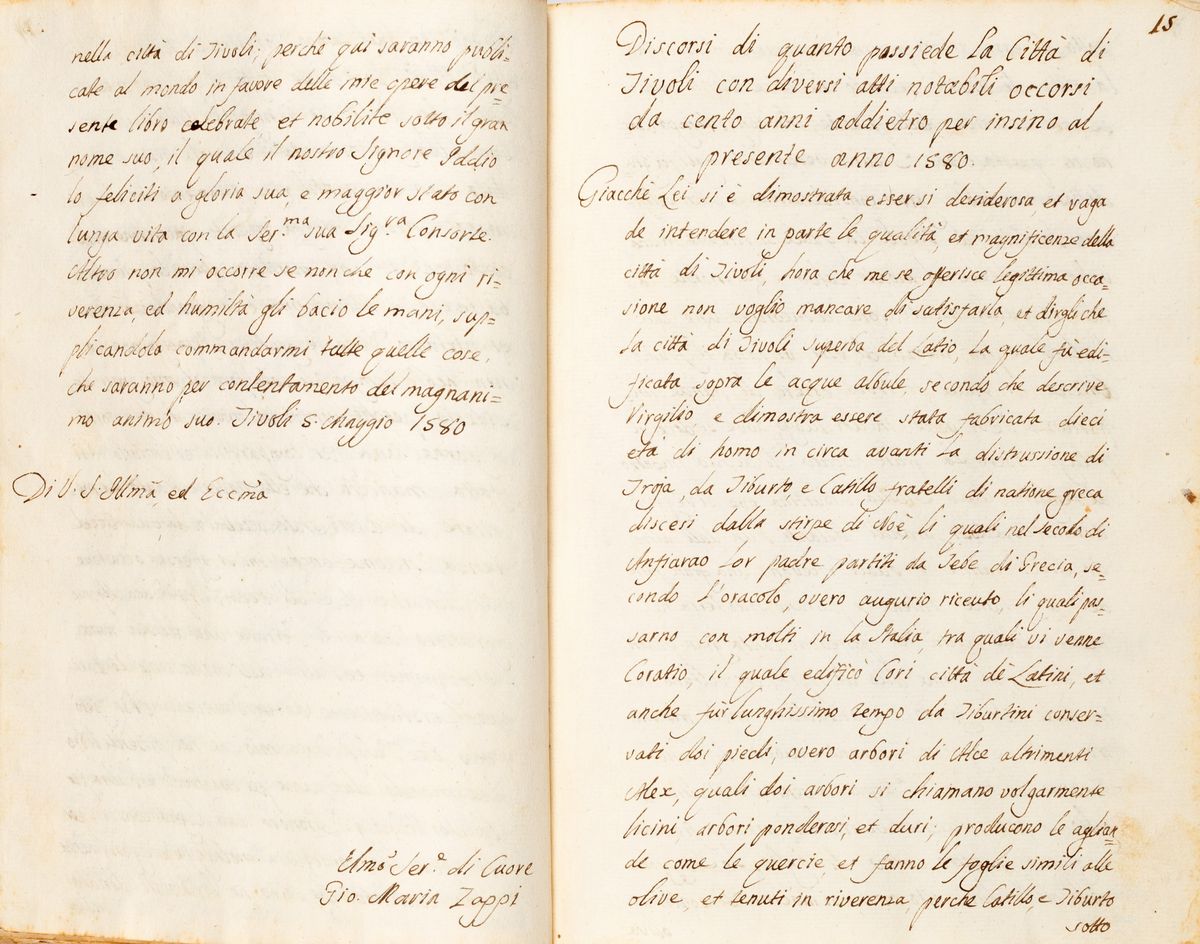 nella città di Tivoli; perchè qui saranno publi=
cate al mondo in favore delle mie opere del pre=
sente libro celebrate et nobilite sotto il gran
nome suo, il quale il nostro Signore Iddio
lo feliciti a gloria sua, e maggior stato con
lunga vita con la Ser.ma sua Sig.ra Consorte.
Altro non mi occorre se non che con ogni ri=
verenza, ed humiltà gli bacio le mani, sup=
plicandola commandarmi tutte quelle cose,
che saranno per contentamento del magnani=
mo animo suo. Tivoli 5. Maggio 1580
Di V. S. Illma, ed Eccma
Umo Sere di Cuore
Gio. Maria Zappi
15
Discorsi di quanto possiede la Città di
Tivoli con diversi atti notabili occorsi
da cento anni addietro per insino al
presente anno 1580.
Giacchè Lei si è dimostrata essersi desiderosa, et vaga
de intendere in parte le qualità, et magnificenze della
città di Tivoli, hora che me se offerisce legittima occa=
sione non voglio mancare di satisfarla, et dirgli che
la città di Tivoli superba del Latio, la quale fu edi=
ficata sopra le acque albule, secondo che descrive
Virgilio e dimostra essere stata fabricata dieci
età di homo in circa avanti la distrussione di
Troja, da Tiburto, e Catillo fratelli di natione greca
discesi dalla stirpe di Noè, li quali nel secolo di
Anfiarao lor padre partiti da Tebe di Grecia, se=
condo l'oracolo, overo augurio riceuto, li quali pas=
sarno con molti in la Italia, tra quali vi venne
Coratio, il quale edificò Cori città dè Latini, et
anche fur lunghissimo tempo da Tiburtini conser=
vati doi piedi, overo arbori di Alce altrimenti
Alex, quali doi arbori si chiamano volgarmente
licini, arbori ponderosi, et duri; producono le aglian=
de come le quercie, et fanno le foglie simili alle
olive, et tenuti in riverenza, perche Catillo, e Tiburto
sotto